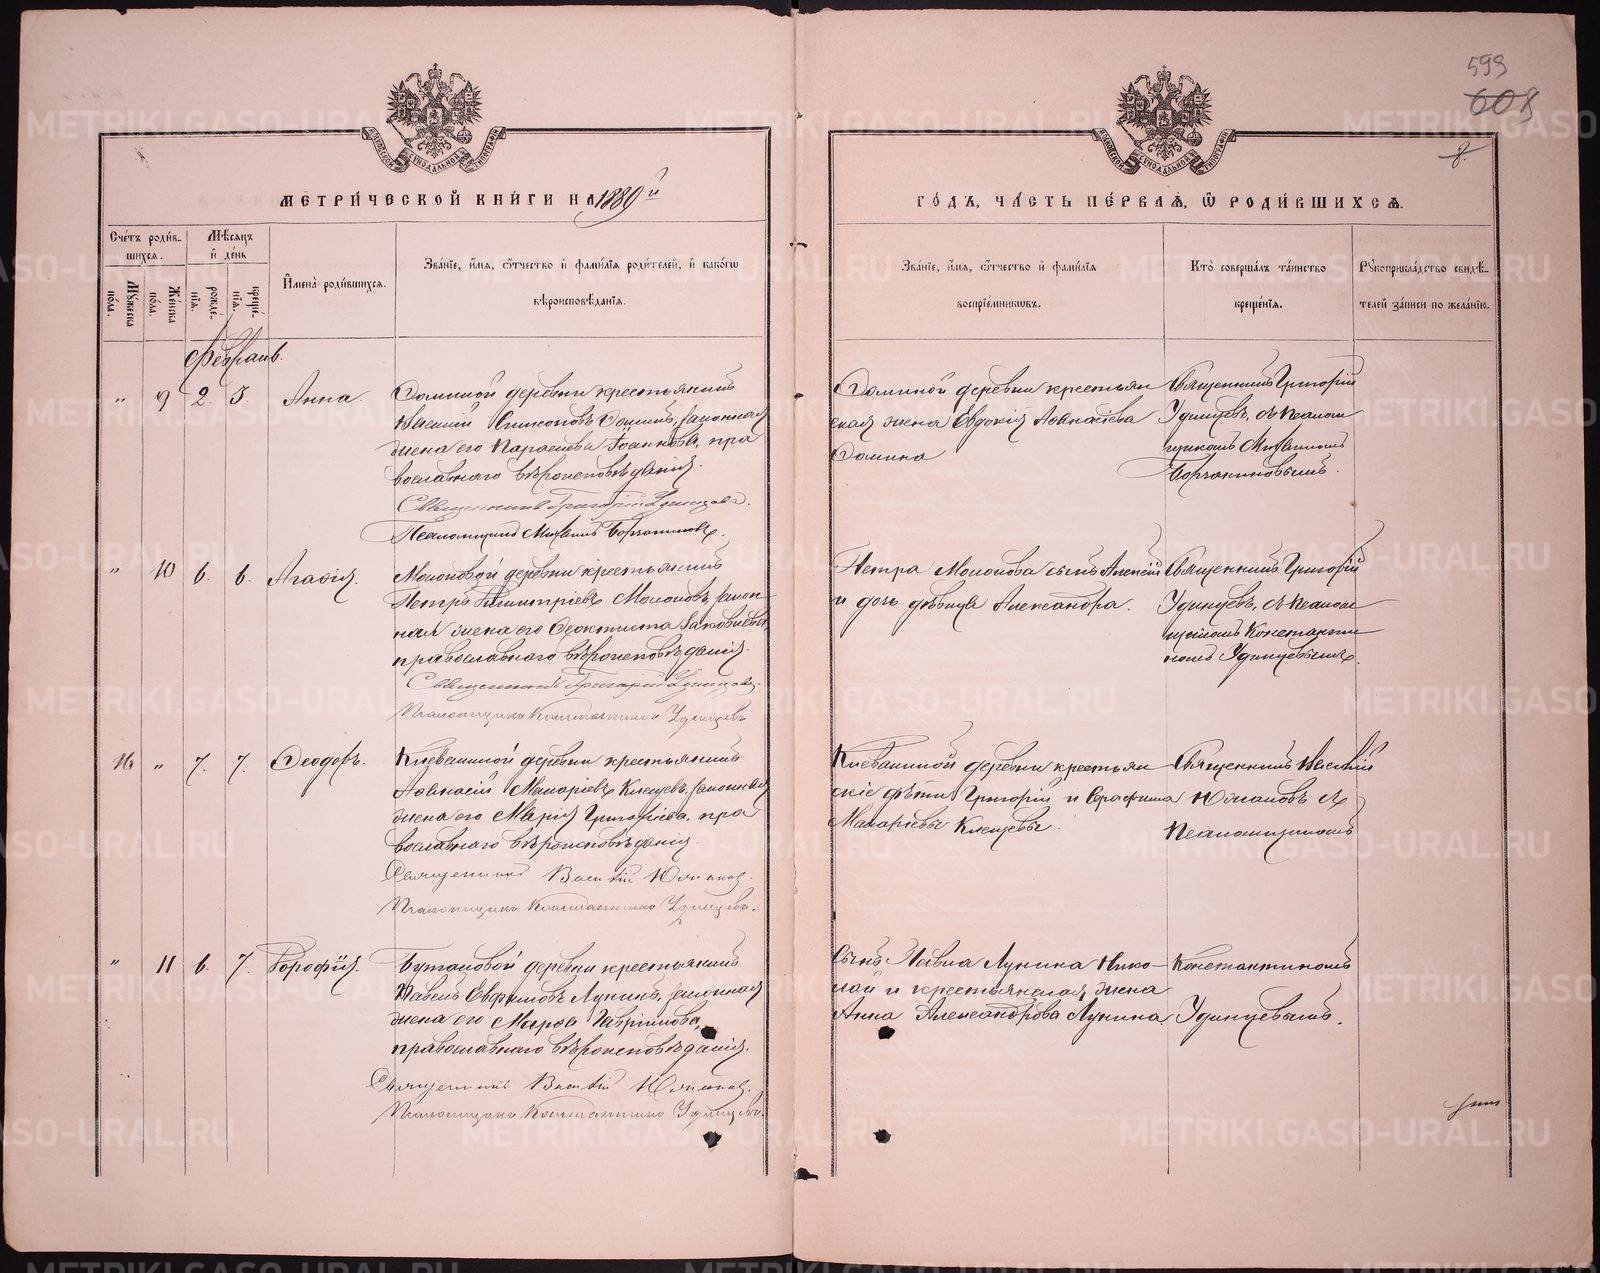 599
608
8.
МЕТРИ́ЧЕСКОЙ КНИ́ГИ НА 1889й
ГО́ДЪ, ЧА́СТЬ ПЕ́РВАЯ, Ѿ РОДИ́ВШИХСЯ.
Сче́тъ роди́в-шихся.
Мѣ́сяцъ и҆ де́нь
И҆мена̀ роди́вшихся.
Зва́нїе, и҆́мя, ѻ҆́тчество и҆ фами́лїя роди́телей, и҆ како́гѡ
вѣроисповѣ́данїя.
Му́жеска по́ла.
Же́нска по́ла.
рожде́-нїя.
креще́-нїя.
Зва́нїе, и҆́мя, ѻ҆́тчество и҆ фами́лїя
воспрїе́мникѡвъ.
Кто̀ соверша́лъ та́инство
креще́нїя.
Рꙋкоприкла́дство свидѣ́-
телей за́писи по жела́нїю.
Февраль.
„ 9 2. 5. Анна.
деревни крестьянинъ
законная
жена его Параскева Іоаннова, пра
вославнаго вѣроисповѣданія.
Священникъ Григорій Удинцовъ.
Псаломщикъ Михаилъ
деревни крестьян
ская жена Евдокія Аѳанасіева
Священникъ Григорій
Удинцевъ, съ псалом
щикомъ Михаиломъ
„ 10 6. 6. Агаѳія.
деревни крестьянинъ
Петръ Димитріевъ закон-
ная жена его Ѳеоктиста Іаковлева,
православнаго вѣроисповѣданія.
Священникъ Григорій Удинцовъ
Псаломщикъ Константинъ Удинцевъ
Петра сынъ Алексій
и дочь дѣвица Александра.
Священникъ Григорій
Удинцевъ, съ псалом
щикомъ Константи
номъ Удинцевымъ.
16 „ 7. 7. Ѳеодоръ.
деревни крестьянинъ
Аѳанасій Макаріевъ Клещевъ, законная
жена его Марія Григоріева, пра
вославнаго вѣроисповѣданія.
Священникъ Василій Южаковъ.
Псаломщикъ Константинъ Удинцевъ.
деревни крестьян
скіе дѣти Григорій и Серафима
Макаріевы Клещевы.
Священникъ Василій
Южаковъ съ
псаломщикомъ
„ 11 6. 7.
деревни крестьянинъ
Павелъ Евфимовъ Лукинъ, законная
жена его Марѳа Гавріилова,
православнаго вѣроисповѣданія.
Священникъ Василій Южаковъ.
Псаломщикъ Константинъ Удинцевъ.
Сынъ Павла Лукина Нико-
лай и крестьянская жена
Анна Александрова Лукина.
Константиномъ
Удинцевымъ.
METRIKI.GASO-URAL.RU